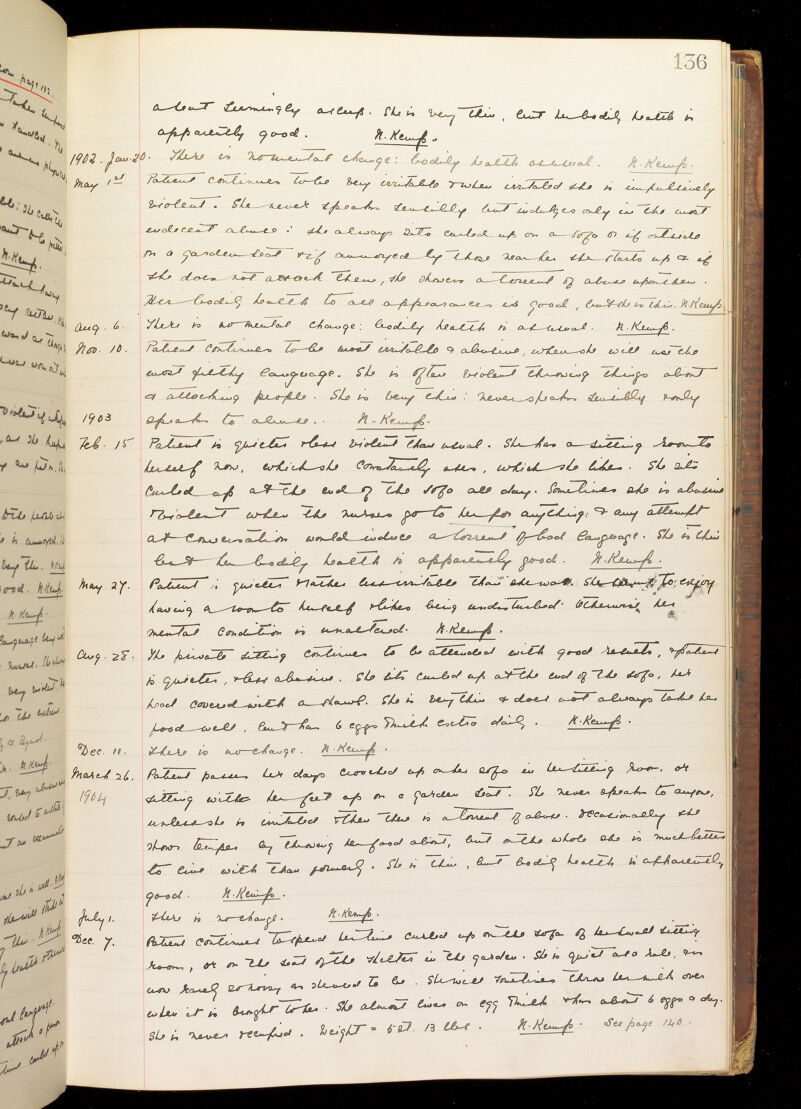 136
about seemingly asleep. She is very thin, but her bodily health is
apparently good. N. Kemp.
1902. Jan. 20. There is no mental change: bodily health as usual. N. Kemp.
May 1st Patient continues to be very irritable & when irritated she is impulsively
violent. She never speaks sensibly but indulges only in the most
indecent abuse: she always sits curled up on a sofa or if outside
on a garden seat & if annoyed by those near her she starts up & if
she does not attack them, she showers a torrent of abuse upon them.
Her bodily health to all appearances is good, but she is thin. N. Kemp.
Aug. 6. There is no mental change: bodily health is as usual. N. Kemp.
Nov. 10. Patient continues to be most irritable & abusive, when she will use the
most filthy language. She is often violent throwing things about
& attacking people. She is very thin: never speaks sensibly & only
1903 speaks to abuse. N. Kemp.
Feb. 15 Patient is quieter & less violent than usual. She has a sitting room to
herself now, which she constantly uses, which she likes. She sits
curled up at the end of the sofa all day. Sometimes she is abusive
& violent when the nurses go to her for anything, & any attempt
at conversation would induce a torrent of bad language. She is thin
but her bodily health is apparently good. N. Kemp.
May 27. Patient is quieter & rather less irritable than she was. She to enjoy
having a room to herself & likes being undisturbed. Otherwise her
mental condition is unaltered. N. Kemp.
Aug. 28. The private sitting continues to be attended with good results, & patient
is quieter, & less abusive. She sits curled up at the end of the sofa, her
head covered with a shawl. She is very thin & does not always take her
food well, but has 6 eggs & milk extra daily. N. Kemp.
Dec. 11. There is no change. N. Kemp.
March 26. Patient passes her days crouched up on her sofa in her sitting room, or
1904 sitting with her feet up on a garden seat. She never speaks to anyone,
unless she is irritated & then there is a torrent of abuse. Occasionally she
shows temper by throwing her food about, but on the whole she is much better
to live with than formerly. She is thin, but bodily health is apparently
good. N. Kemp.
July 1. There is no change. N. Kemp.
Dec. 7. Patient continues to spend her time curled up on the sofa of her small sitting
room, or on the seat of the shelter in the garden. She is quiet as a rule, & is
now rarely so noisy as she used to be. She will sometimes throw her milk over
when it is brought to her. She almost lives on egg & milk & has about 6 eggs a day.
She is never occupied. Weight = 5 st. 13 lbs. N. Kemp. See page 140.